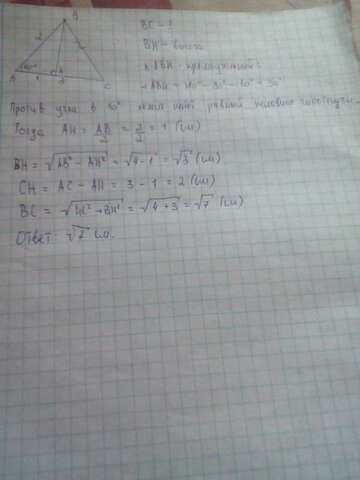 B
2
60°
A
1
H
C
BC - ?
BH - высота
△ABH - прямоугольный
∠ABH = 180° - 90° - 60° = 30°
Против угла в 30° лежит катет равный половине гипотенузы
Тогда AH = AB/2 = 2/2 = 1 (см)
BH = √AB² - AH² = √4 - 1 = √3 (см)
CH = AC - AH = 3 - 1 = 2 (см)
BC = √HC² + BH² = √4 + 3 = √7 (см)
Ответ: √7 см.